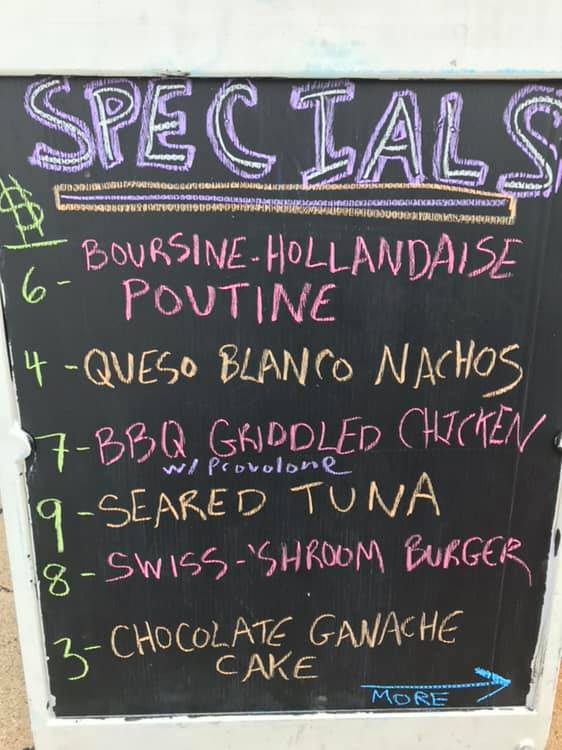 SPECIALS
$
6- BOURSINE-HOLLANDAISE
POUTINE
4 - QUESO BLANCO NACHOS
7- BBQ GRIDDLED CHICKEN
w/ Provolone
9 - SEARED TUNA
8 - SWISS-'SHROOM BURGER
3- CHOCOLATE GANACHE
CAKE
MORE